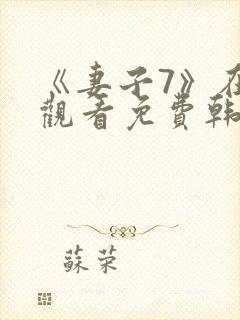 《妻子7》在
觀看免費韓
蘇荣